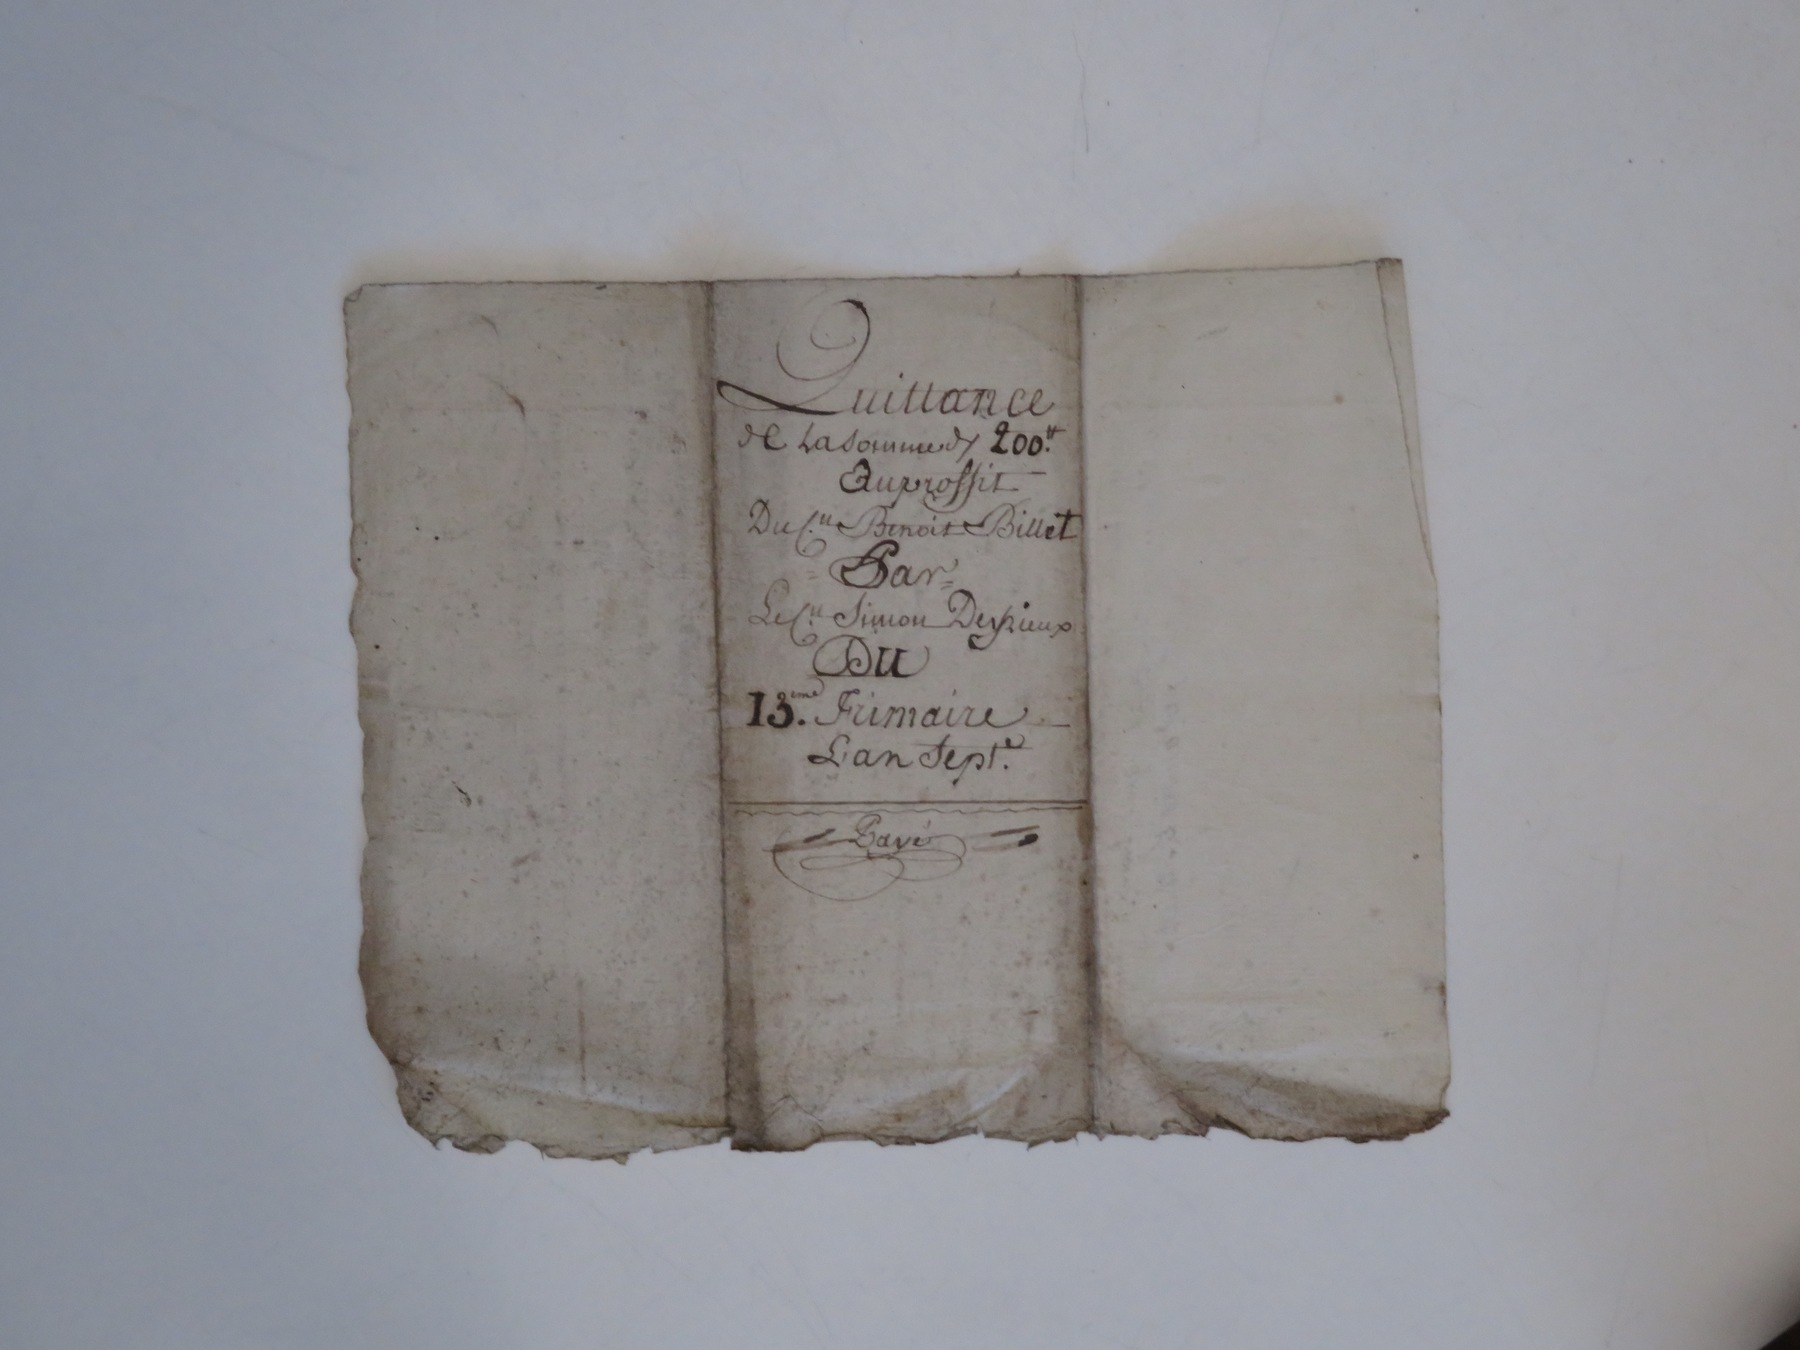 Quittance
de la somme de 200.tt
Auproffit
Du C.en Benoit Billet
= Par =
Le C.en Simon Desrieux
Du
13.eme Frimaire
L'an Sept.e
Payé